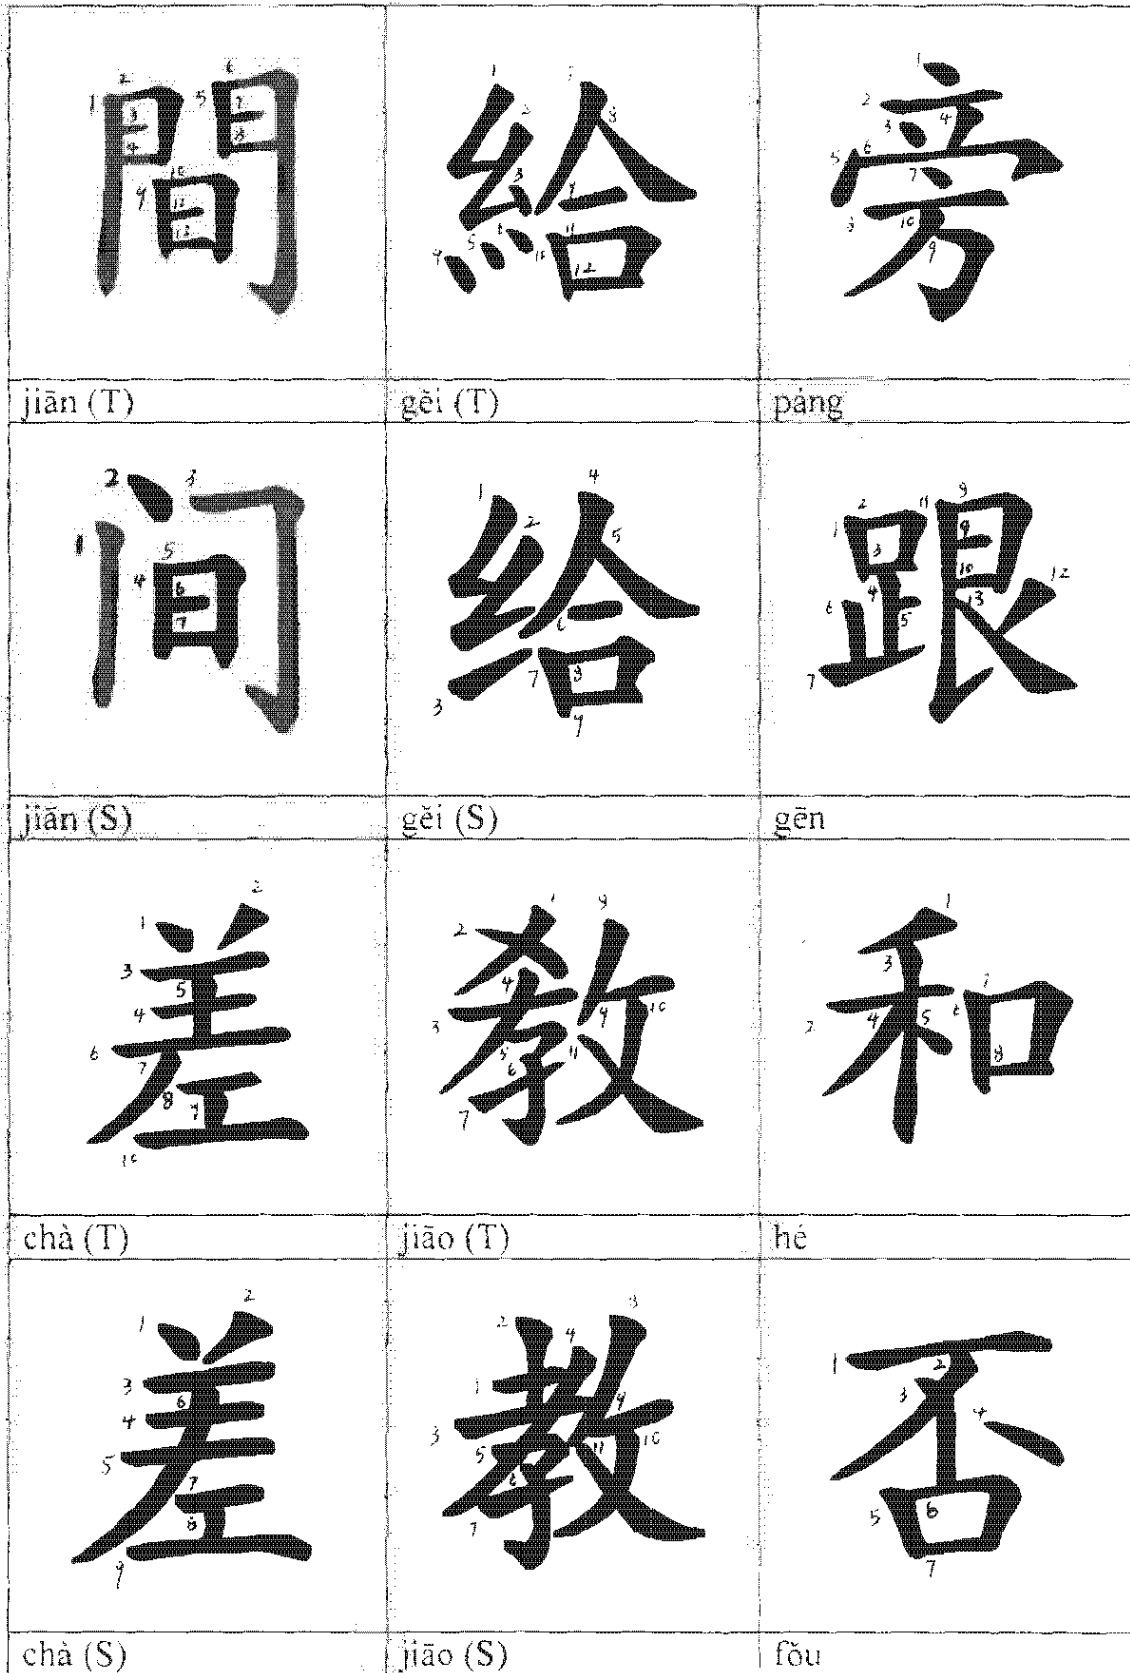 間 給 旁
jiān (T) gěi (T) páng
间 给 跟
jiān (S) gěi (S) gēn
差 敎 和
chà (T) jiāo (T) hé
差 教 否
chà (S) jiāo (S) fǒu